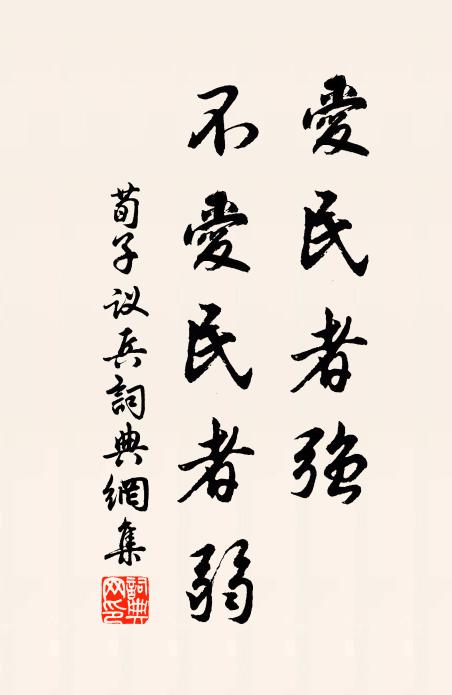 愛民者強
不愛民者弱
荀子议兵詞典網集
詞典网印